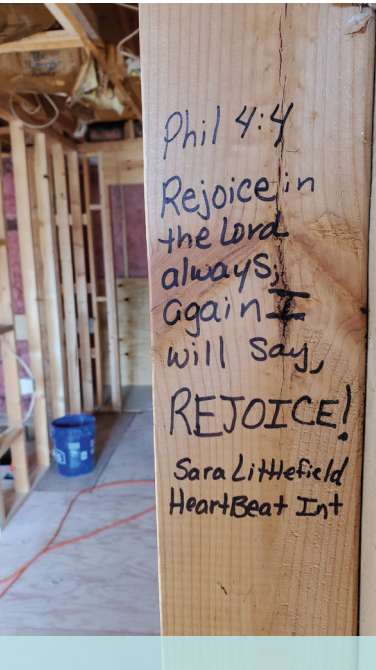 Phil 4:4
Rejoice in
the Lord
always;
again I
will say,
REJOICE!
Sara Littlefield
HeartBeat Int